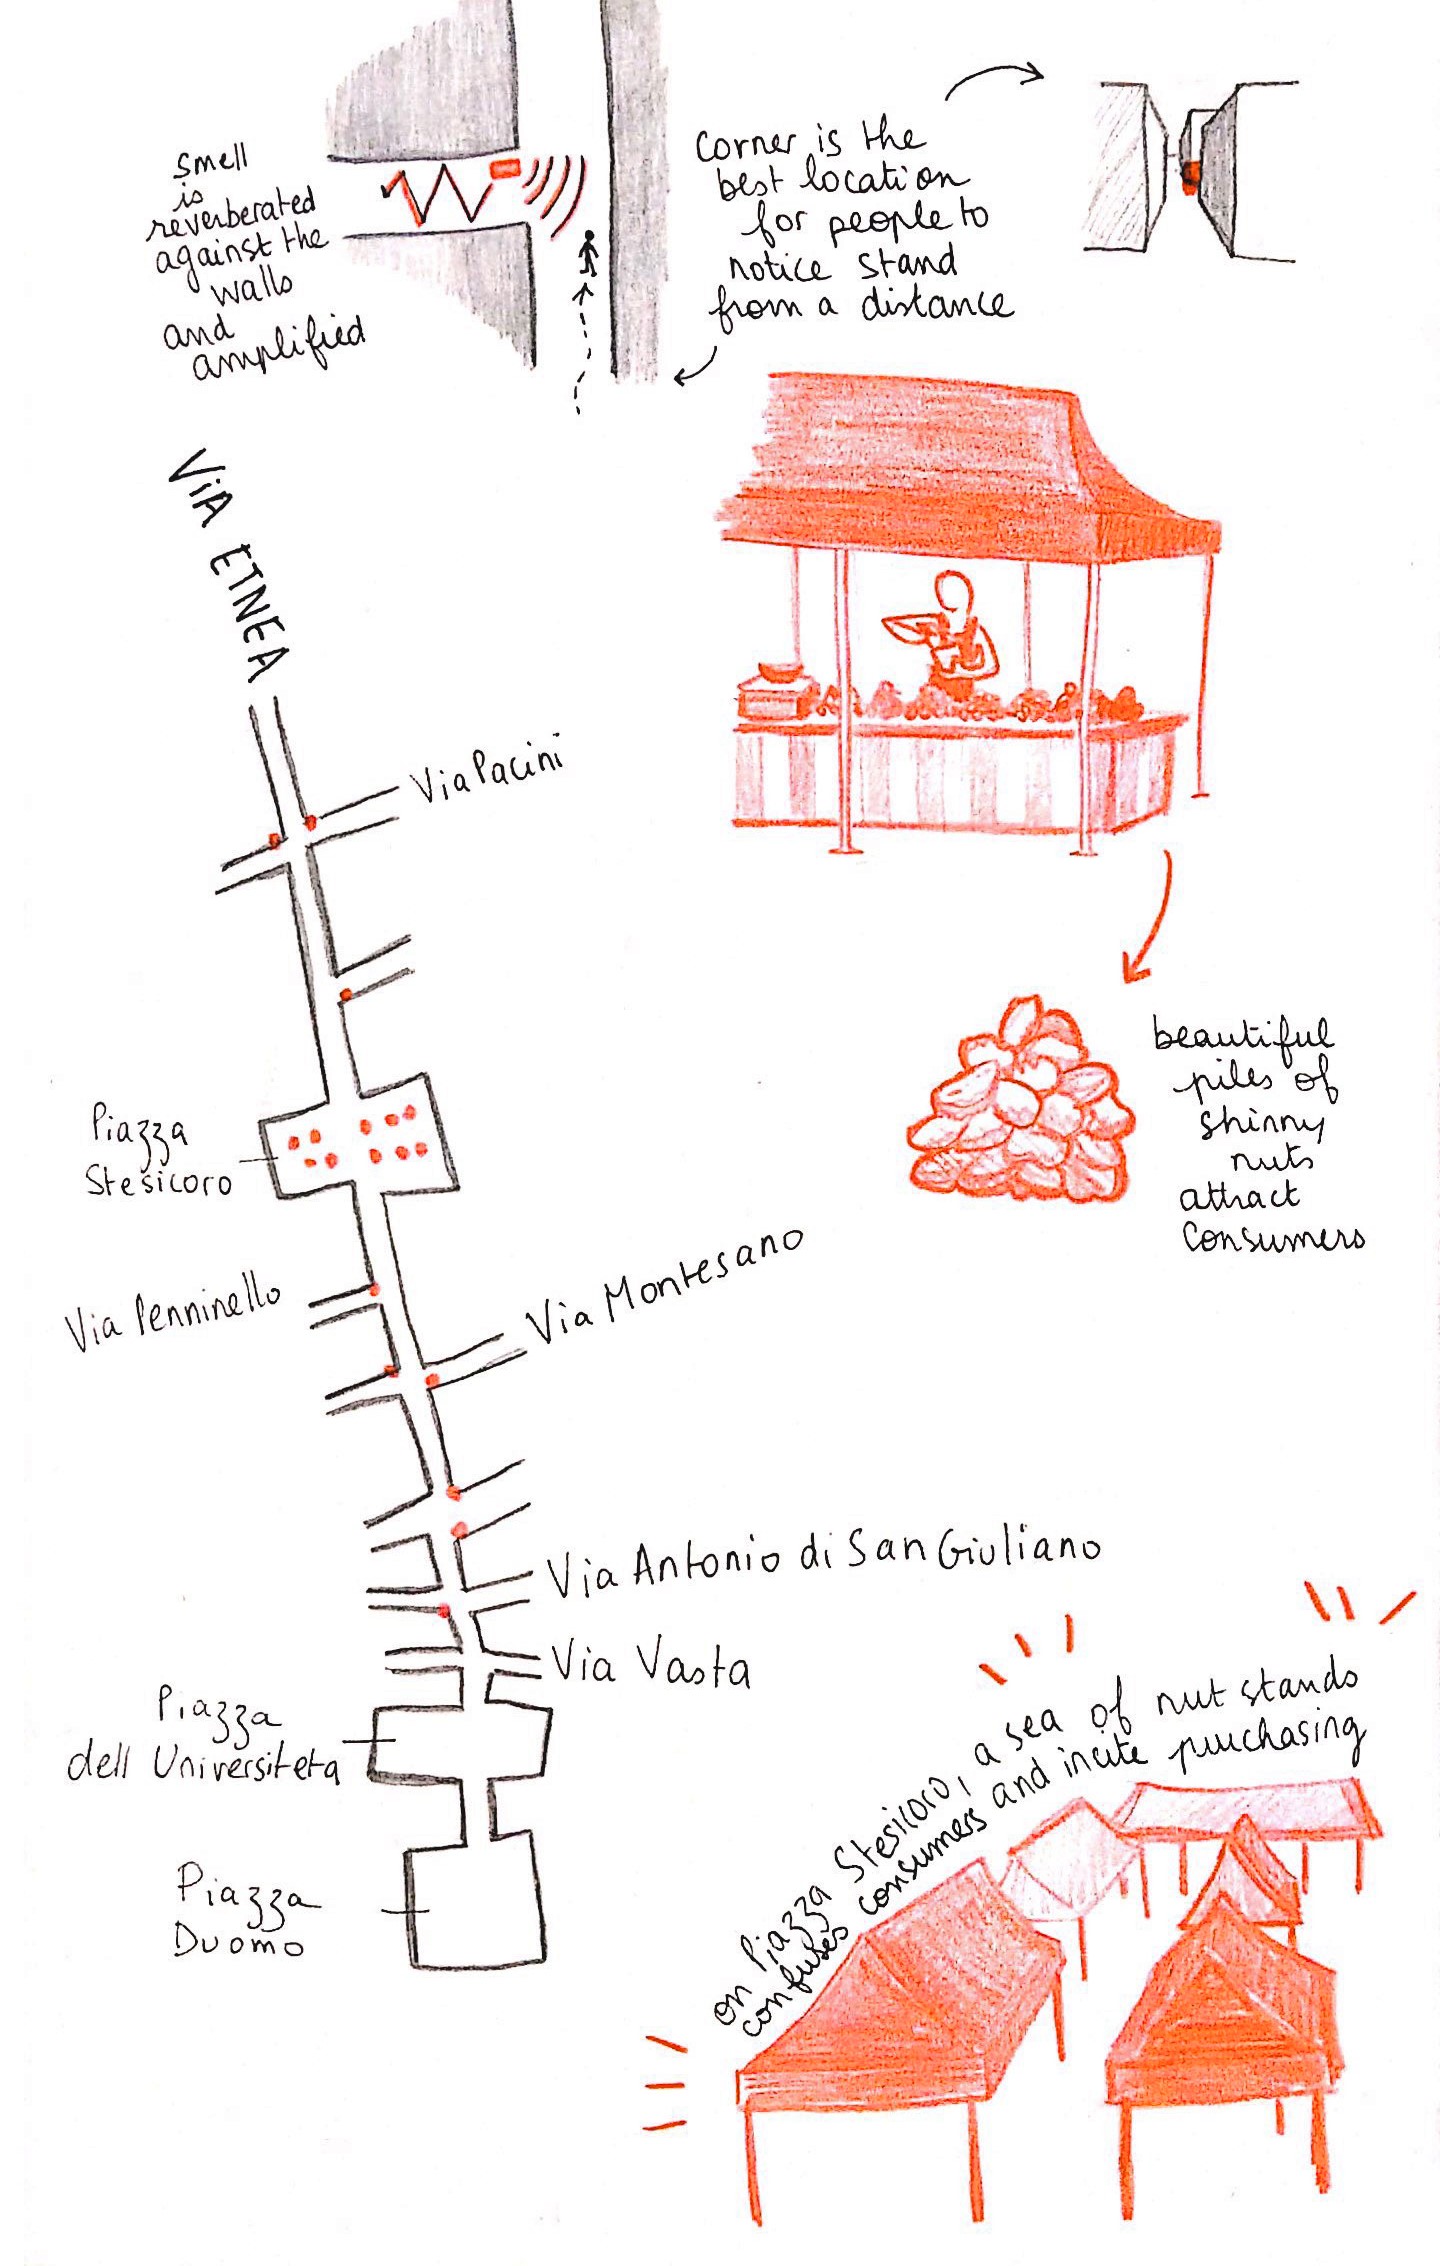 smell
is
reverberated
against the
walls
and
amplified
corner is the
best location
for people to
notice stand
from a distance
ViA ETNEA
Via Pacini
Piazza
Stesicoro
Via Penninello
Via Montesano
beautiful
piles of
shinny
nuts
attract
consumers
Via Antonio di San Giuliano
Via Vasta
Piazza
dell Universiteta
Piazza
Duomo
on Piazza Stesicoro, a sea of nut stands
confuses consumers and incite purchasing